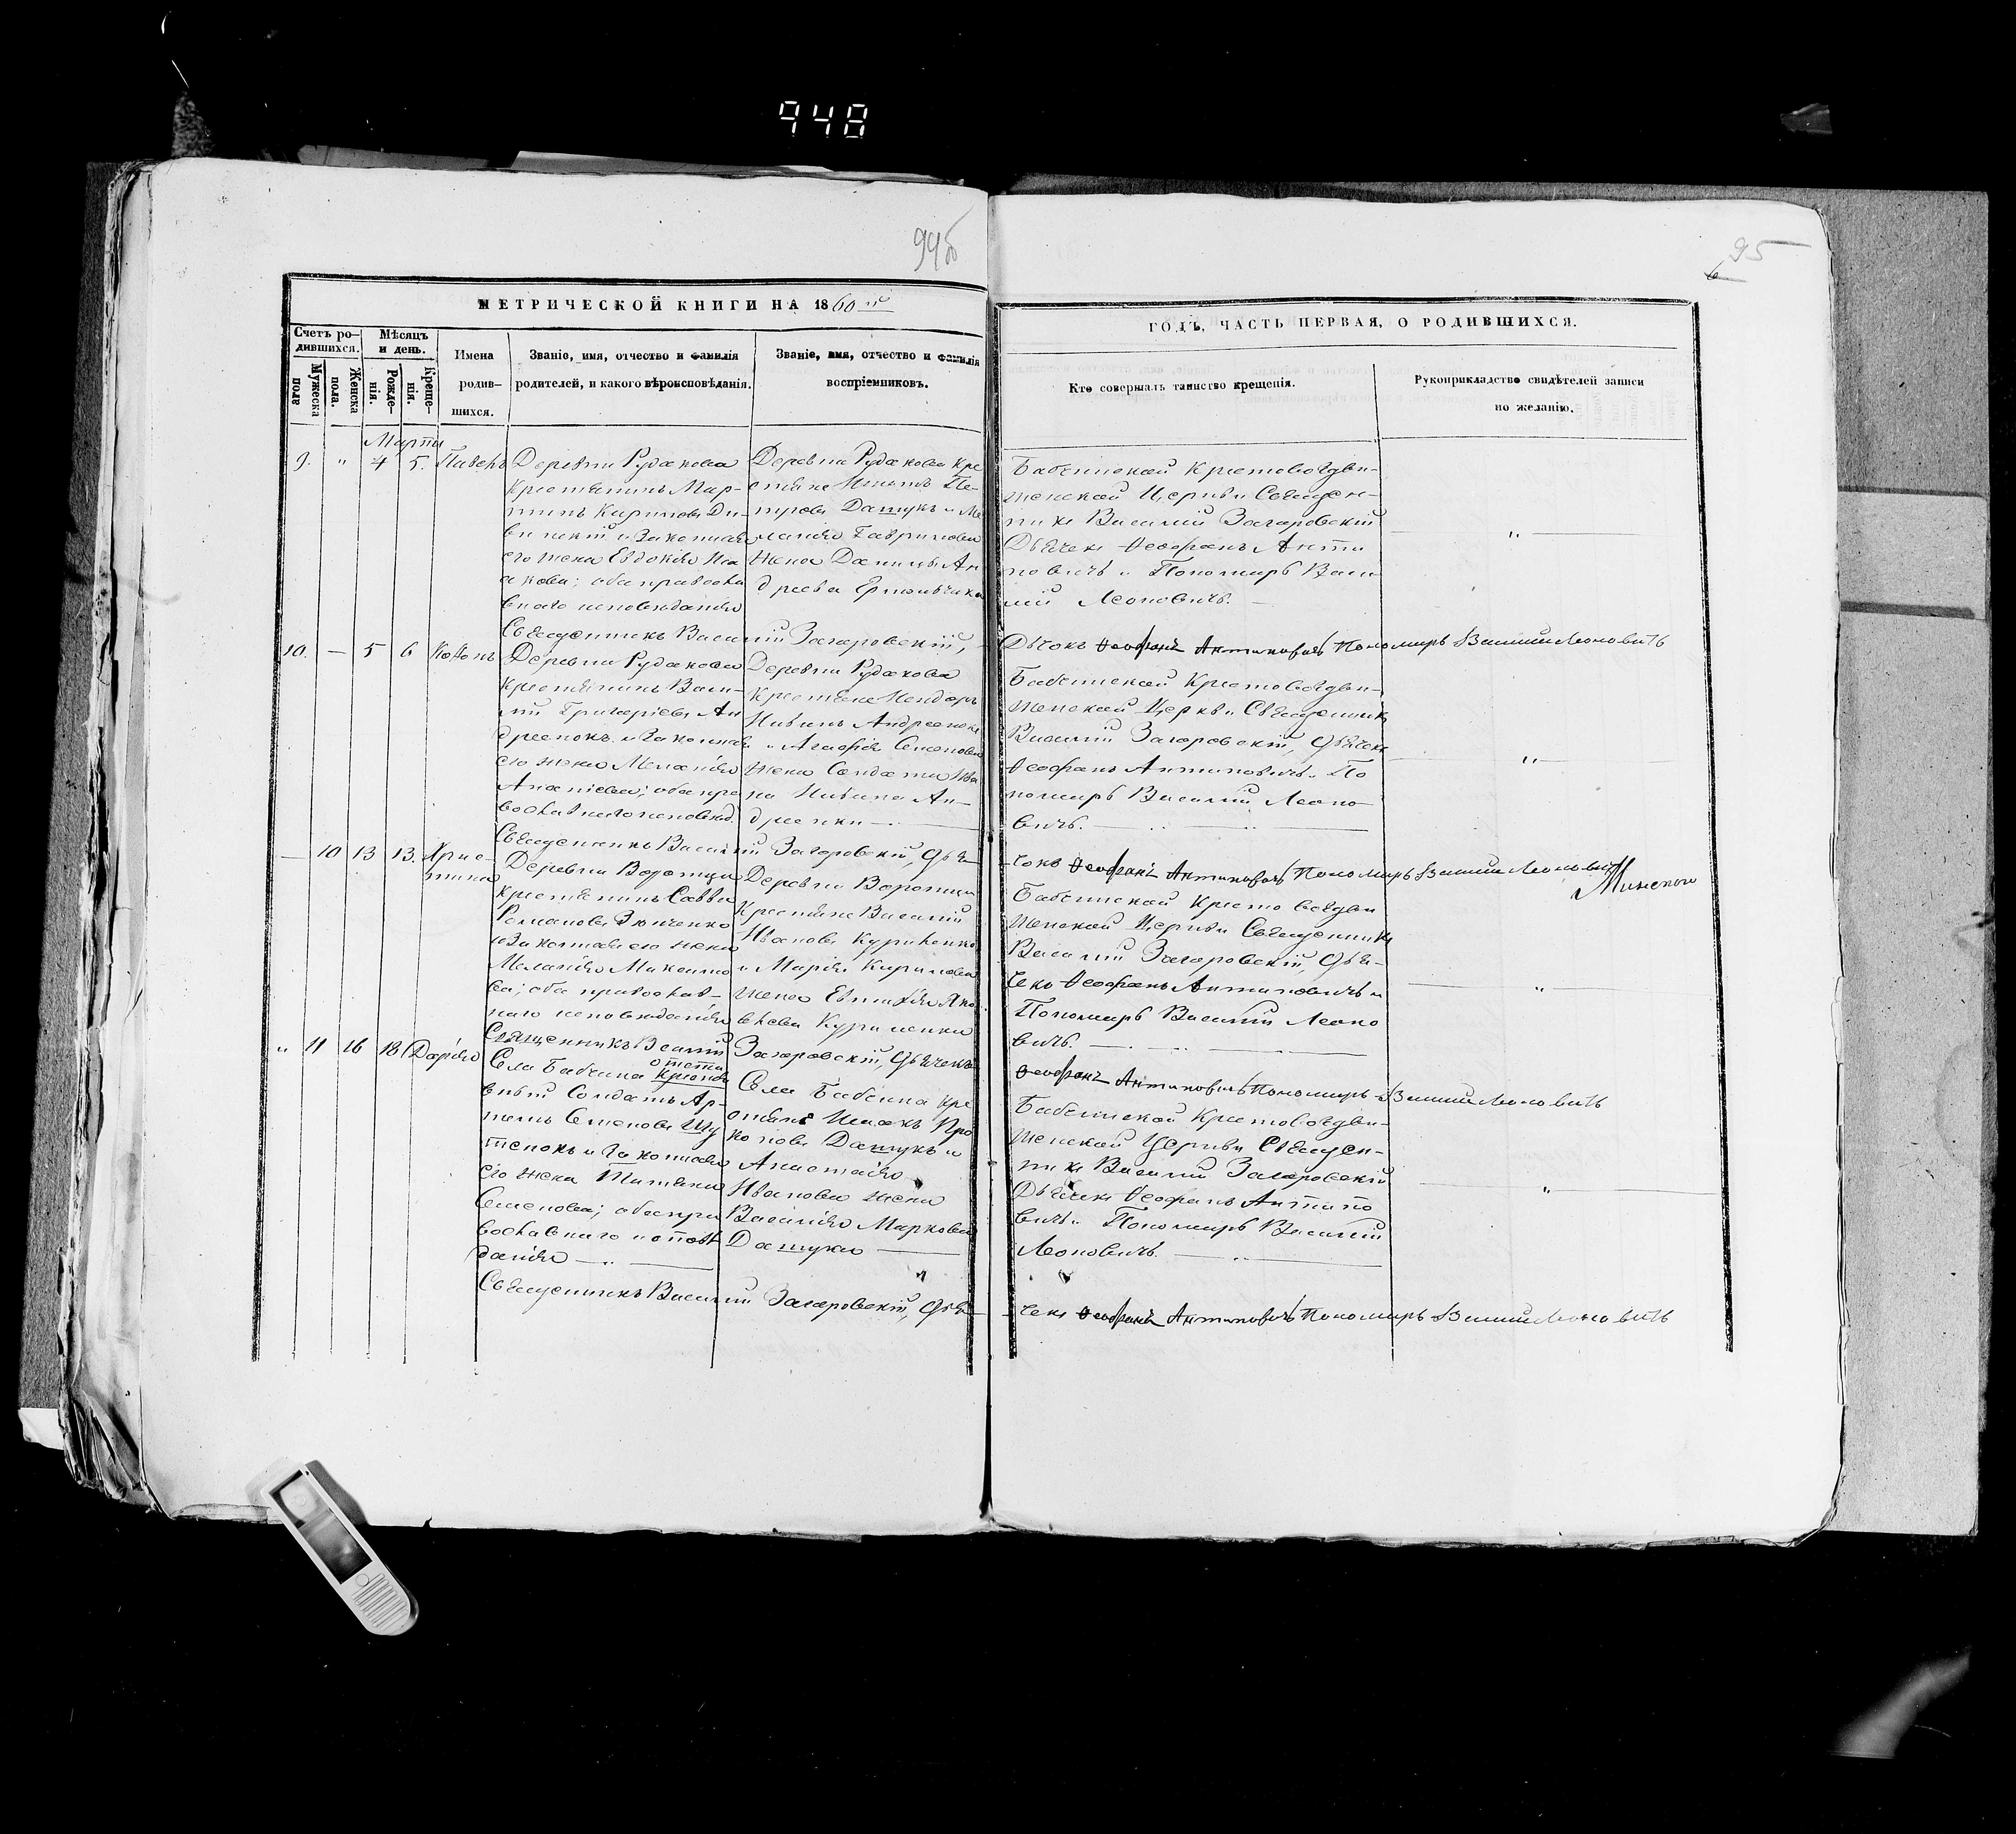 948
94об
95
МЕТРИЧЕСКОЙ КНИГИ НА 1860 й
ГОДЪ, ЧАСТЬ ПЕРВАЯ, О РОДИВШИХСЯ.
Счетъ ро-
дившихся.
Мужеска
пола
Женска
пола.
Мѣсяцъ
и день.
Рожде-
нія.
Креще-
нія.
Имена
родив-
шихся.
Званіе, имя, отчество и фамилія
родителей, и какого вѣроисповѣданія.
Званіе, имя, отчество и фамилія
воспріемниковъ.
Кто совершалъ таинство крещенія.
Рукоприкладство свидѣтелей записи
по желанію.
Марта
9. " 4 5. Павелъ
Деревни Рудакова
Крестьянинъ Мар-
тинъ Кириловъ
и Законная
его жена Евдокія Иса
акова; оба правосла
внаго исповѣданія
Деревни Рудакова Кре
стьяне Игнатъ Пе-
тровъ Дашукъ и Ме
ланія Гаврилова
жена Данилы Ан
дреева
Бабчинской Крестовоздви-
женской Церкви Священ-
никъ Василій Загоровскій
Дьячекъ Ѳеофанъ Анти
повичъ и Пономарь Васи
лій Леоновичъ. —
Священникъ Василій Загоровскій, Дьчокъ Ѳеофанъ Антиповичъ Пономарь Василій Леоновичъ
10. — 5 6 Кононъ
Деревни Рудакова
Крестьянинъ Васи-
лій Григоріевъ Ан
дреенокъ и Законная
его жена Меланія
Ананіева; оба пра
вославнаго исповѣд.
Деревни Рудакова
Крестьяне
Андреенокъ
и Агафія Семенова
жена Солдата Ива
на Ан-
дреенки —
Бабчинской Крестовоздви-
женской Церкви Священникъ
Василій Загоровскій, Дьячекъ
Ѳеофанъ Антиповичъ и По
номарь Василій Леоно-
вичъ. —
Священникъ Василій Загоровскій, Дья-
чокъ Ѳеофанъ Антиповичъ Пономарь Василій Леоновичъ
Минской
— 10 13 13. Хрис-
тина
Деревни Воротца
Крестьянинъ Савва
Романовъ Зенченко
и Законная его жена
Меланія Максимо
ва; оба православ-
наго исповѣданія
Деревни Воротца
Крестьяне Василій
Ивановъ Куриленко
и Марія Кирилова
жена Евтихія Яко
влева Куриленки
Бабчинской Крестовоздви
женской Церкви Священникъ
Василій Загоровскій, Дья-
чекъ Ѳеофанъ Антиповичъ и
Пономарь Василій Леоно
вичъ. —
Священникъ Василій Загоровскій, Дьячекъ
Ѳеофанъ Антиповичъ Пономарь Василій Леоновичъ
" 11 16 18 Дарія
Села Бабчина
Солдатъ Ар-
темъ Семеновъ Шу
тенокъ и Законная
его жена Татіана
Семенова; оба пра
вославнаго исповѣ
данія —
Села Бабчина Кре
стьяне Исаакъ Про
коповъ Дашукъ и
Анастасія
Иванова жена
Василія Маркова
Дашука —
Бабчинской Крестовоздви-
женской Церкви Священ-
никъ Василій Загоровскій
Дьячекъ Ѳеофанъ Антипо
вичъ и Пономарь Василій
Леоновичъ. —
Священникъ Василій Загоровскій, Дья-
чекъ Ѳеофанъ Антиповичъ Пономарь Василій Леоновичъ